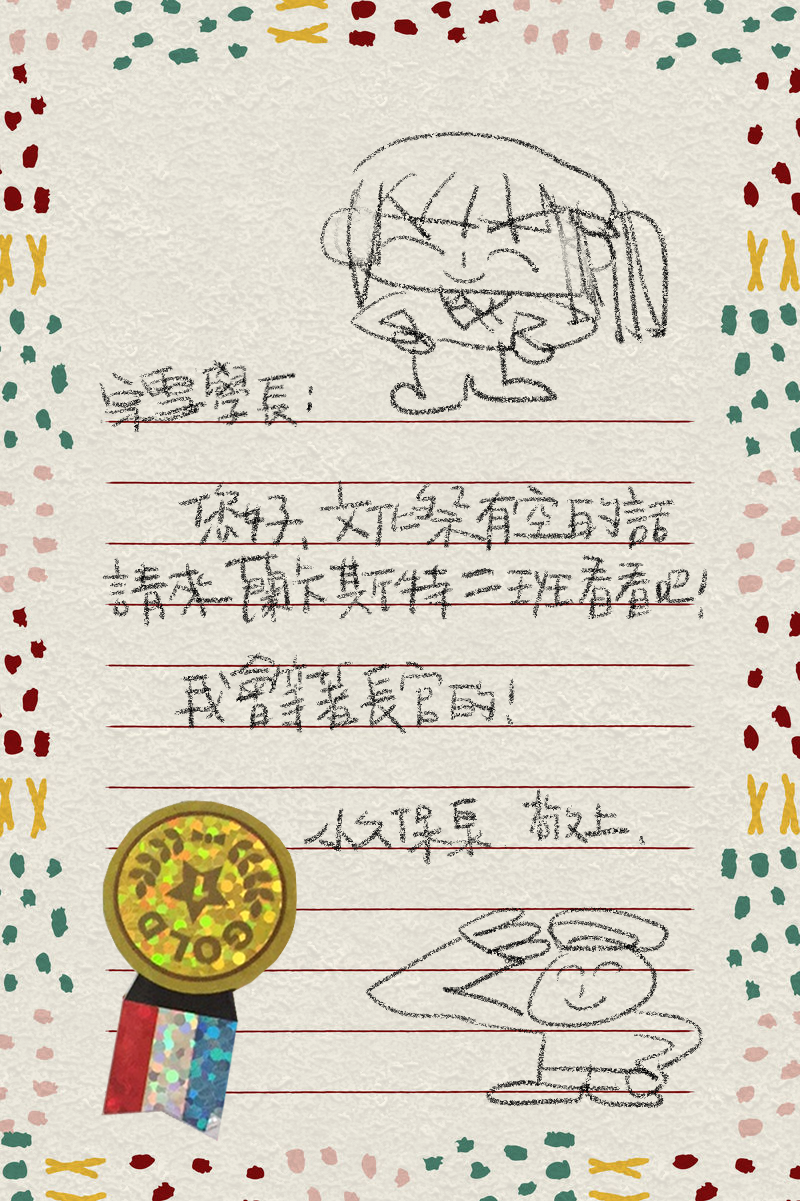 雪學長!
您好,文化祭有空的話
請來蘭卡斯特二班看看吧!
我會等著長官的!
小久保泉 敬上.
GOLD